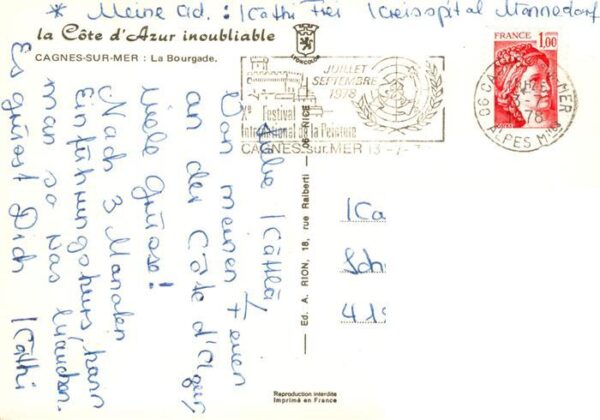 * Meine Ad. : Käthi Frei Kreisspital Männedorf
la Côte d'Azur inoubliable
CAGNES-SUR-MER : La Bourgade.
YVON COLOR
JUILLET
SEPTEMBRE
1978
Xe Festival
International de la Peinture
CAGNES sur MER
FRANCE
1,00
06 CAGNES MER
78
ALPES Mmes
Liebe Käthly
Von meinen Ferien
an der Côte d'Azur
liebe Grüsse!
Nach 3 Monaten
Einführungskurs, kann
man so was brauchen.
Es grüsst Dich Käthi
Ed. A. RION, 18, rue Ralberti — 06-NICE
Ka
Sch
41
Reproduction interdite
Imprimé en France